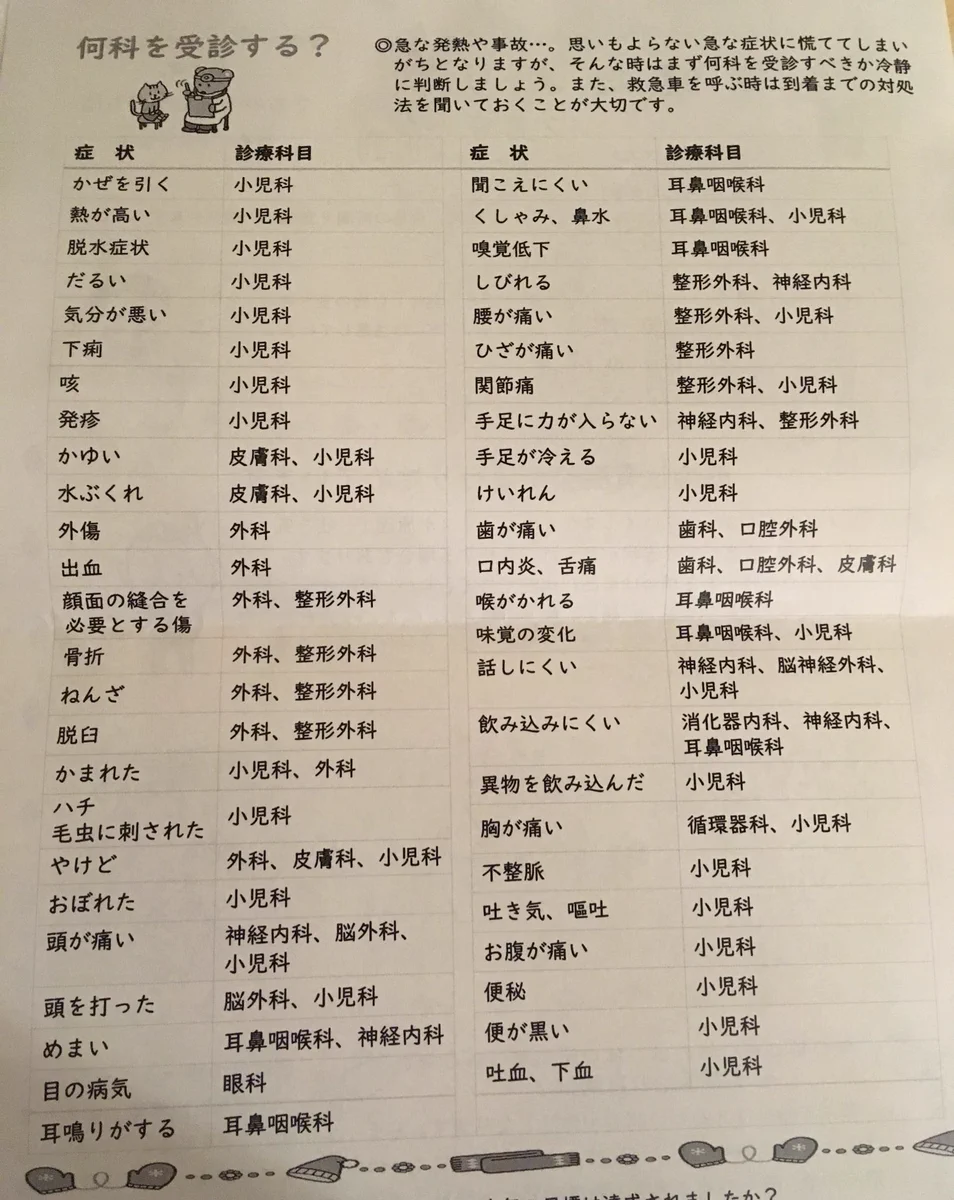 何科を受診する？
◎急な発熱や事故…。思いもよらない急な症状に慌ててしまい
がちとなりますが、そんな時はまず何科を受診すべきか冷静
に判断しましょう。また、救急車を呼ぶ時は到着までの対処
法を聞いておくことが大切です。
症　状　診療科目
かぜを引く　小児科
熱が高い　小児科
脱水症状　小児科
だるい　小児科
気分が悪い　小児科
下痢　小児科
咳　小児科
発疹　小児科
かゆい　皮膚科、小児科
水ぶくれ　皮膚科、小児科
外傷　外科
出血　外科
顔面の縫合を　外科、整形外科
必要とする傷
骨折　外科、整形外科
ねんざ　外科、整形外科
脱臼　外科、整形外科
かまれた　小児科、外科
ハチ
毛虫に刺された　小児科
やけど　外科、皮膚科、小児科
おぼれた　小児科
頭が痛い　神経内科、脳外科、
小児科
頭を打った　脳外科、小児科
めまい　耳鼻咽喉科、神経内科
目の病気　眼科
耳鳴りがする　耳鼻咽喉科
症　状　診療科目
聞こえにくい　耳鼻咽喉科
くしゃみ、鼻水　耳鼻咽喉科、小児科
嗅覚低下　耳鼻咽喉科
しびれる　整形外科、神経内科
腰が痛い　整形外科、小児科
ひざが痛い　整形外科
関節痛　整形外科、小児科
手足に力が入らない　神経内科、整形外科
手足が冷える　小児科
けいれん　小児科
歯が痛い　歯科、口腔外科
口内炎、舌痛　歯科、口腔外科、皮膚科
喉がかれる　耳鼻咽喉科
味覚の変化　耳鼻咽喉科、小児科
話しにくい　神経内科、脳神経外科、
小児科
飲み込みにくい　消化器内科、神経内科、
耳鼻咽喉科
異物を飲み込んだ　小児科
胸が痛い　循環器科、小児科
不整脈　小児科
吐き気、嘔吐　小児科
お腹が痛い　小児科
便秘　小児科
便が黒い　小児科
吐血、下血　小児科
目標は達成されましたか？